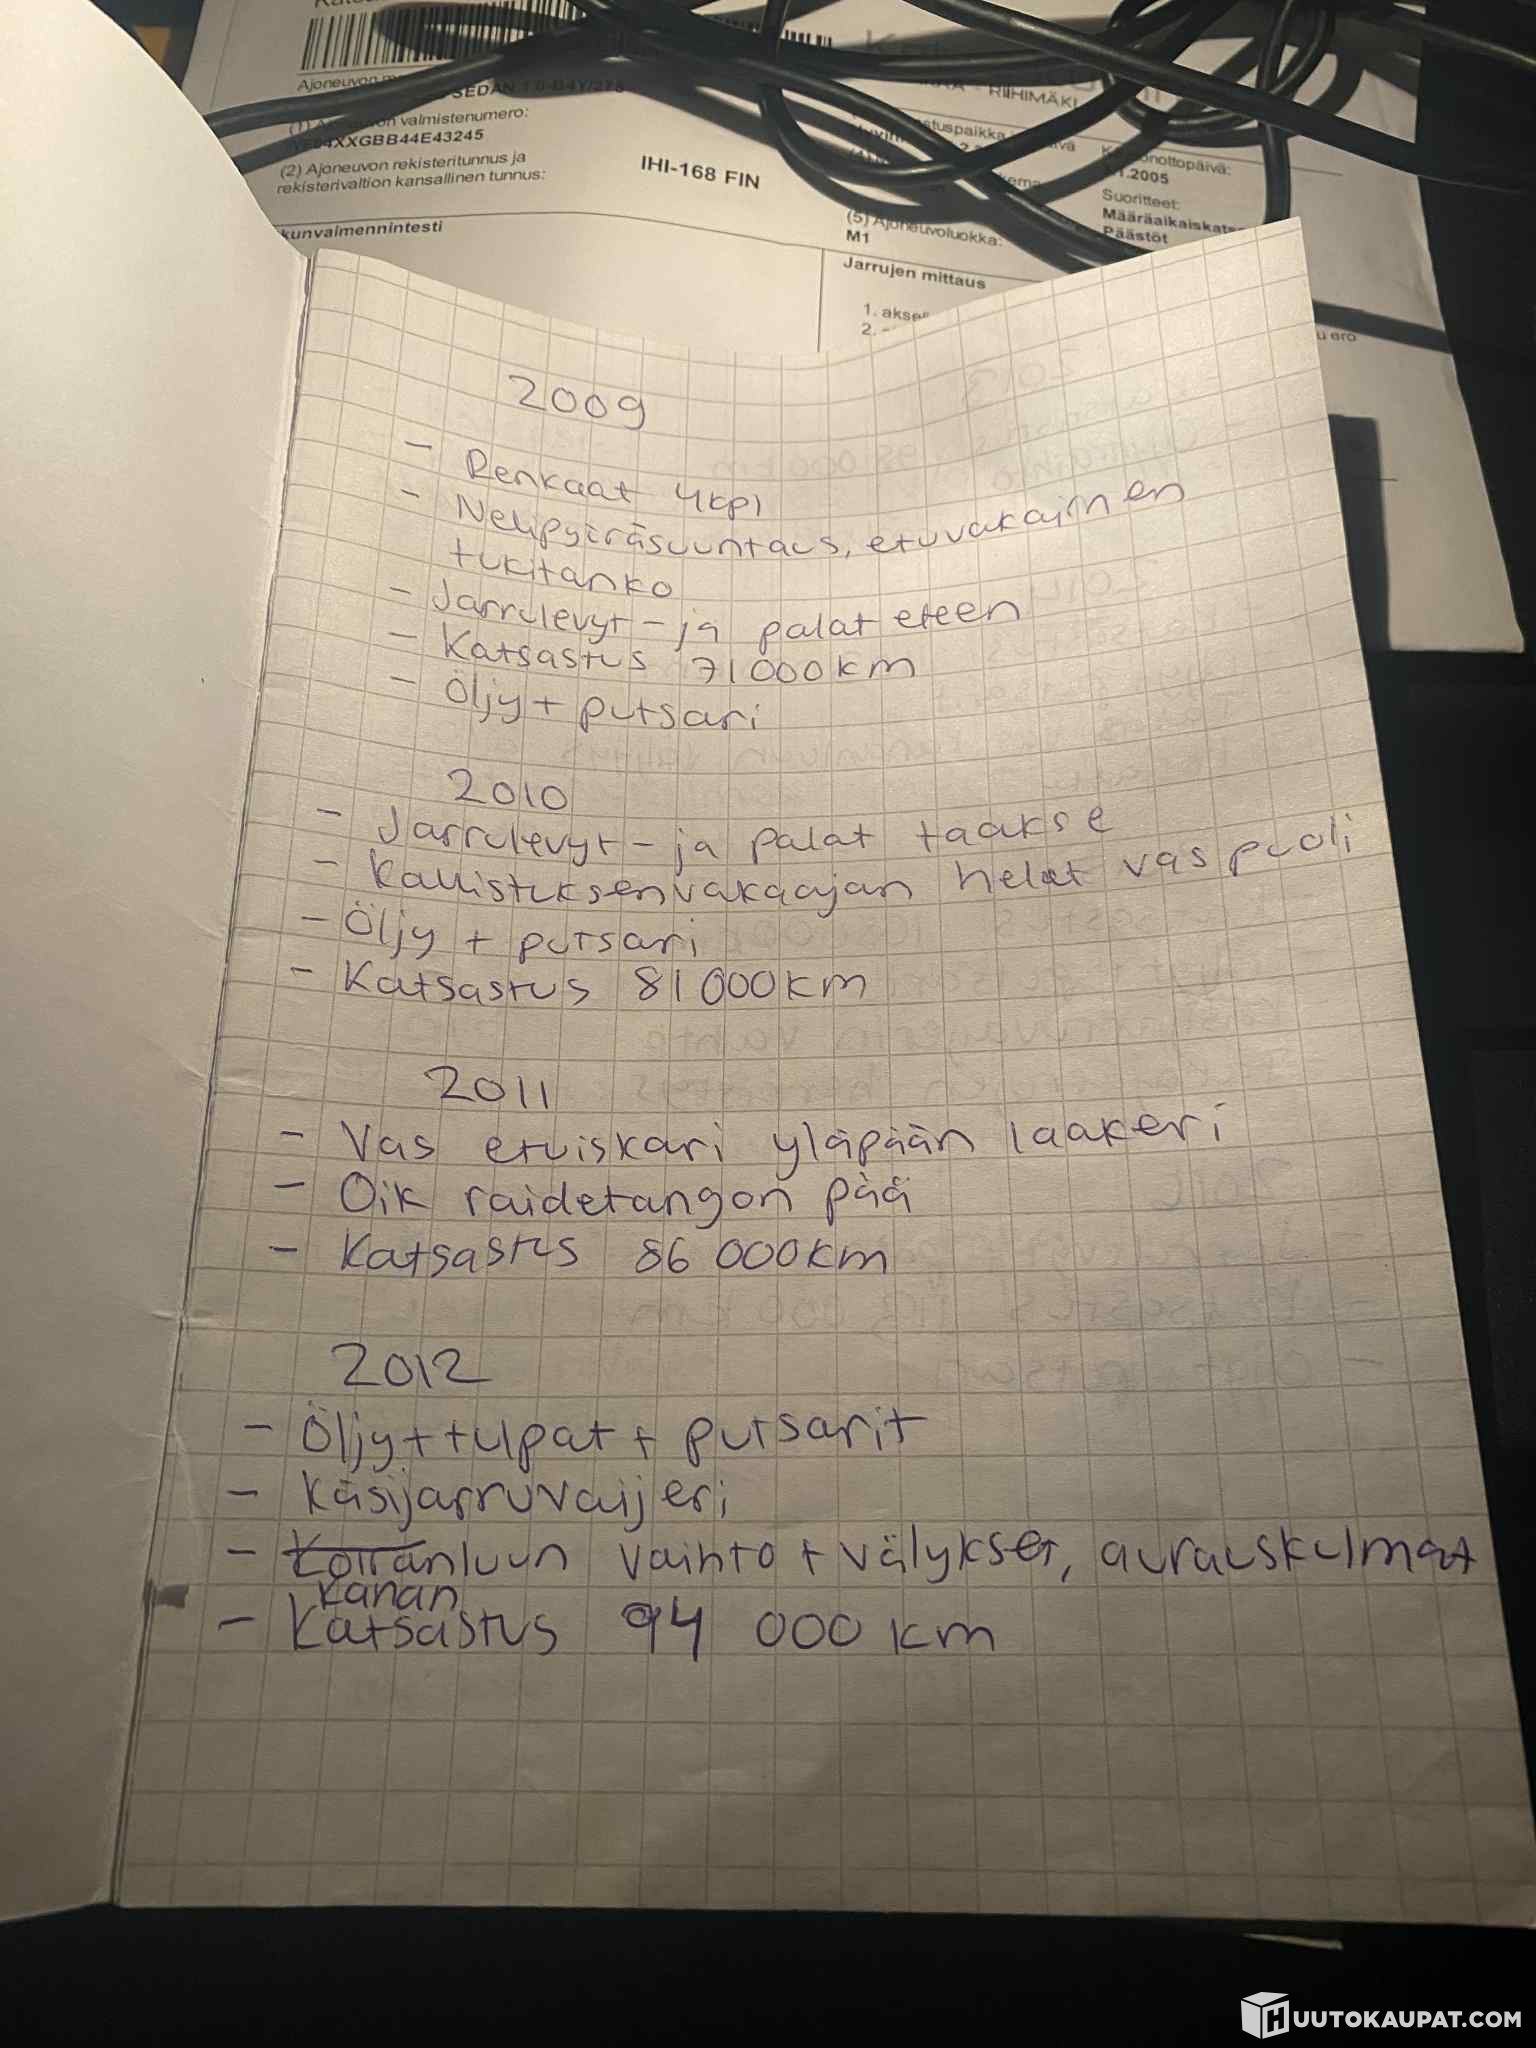 SEDAN
RIIHIMÄKI
Ajoneuvon valmistenumero:
XXGBB44E43245
(2) Ajoneuvon rekisteritunnus ja
rekisterivaltion kansallinen tunnus:
IHI-168 FIN
.2005
Suoritteet:
Määräaikaiskats
Päästöt
(5) Ajoneuvoluokka:
M1
kunvaimennintesti
Jarrujen mittaus
1. aksel
2.
2009
- Renkaat 4kpl
- Nelipyöräsuuntaus, etuvakaimen
tukitanko
- Jarrulevyt - ja palat eteen
- Katsastus 71000km
- Öljy + putsari
2010
- Jarrulevyt - ja palat taakse
- Kallistuksenvakaajan helat vas puoli
- Öljy + putsari
- Katsastus 81 000km
2011
- Vas etuiskari yläpään laakeri
- Oik raidetangon pää
- Katsastus 86 000km
2012
- Öljy + tulpat + putsarit
- Käsijarruvaijeri
- Koiranluun vaihto + välykset, aurauskulmat
kanan
- Katsastus 94 000 km
HUUTOKAUPAT.COM